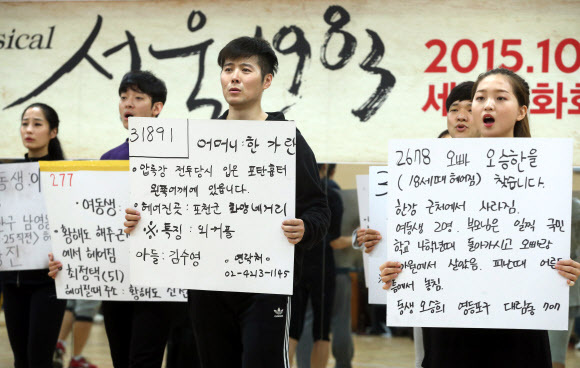 sical
서울1983
2015.10
세
화회
동생:이
구 남영
25직전)
진
277
여동생
• 황해도 해주군
에서 헤어짐
최정택(51)
황해도 신
31891
어머니: 한 가란
• 압록강 전투당시 입은 포탄흉터
왼쪽어깨에 있습니다.
• 헤어진곳: 포천군 화양네거리
※ 특징: 외어풀
아들: 김수영
• 연락처
02-4213-1145
2678 오빠 오승한을
(18세때 헤어짐) 찾습니다.
한강 근처에서 사라짐.
여동생 2명. 부모님은 일찍 국민
학교 다니던때 돌아가시고 오빠랑
가원에서 살았음. 피난때 어린
통에서 놓침.
동생 오승희 영등포구 대림동 707